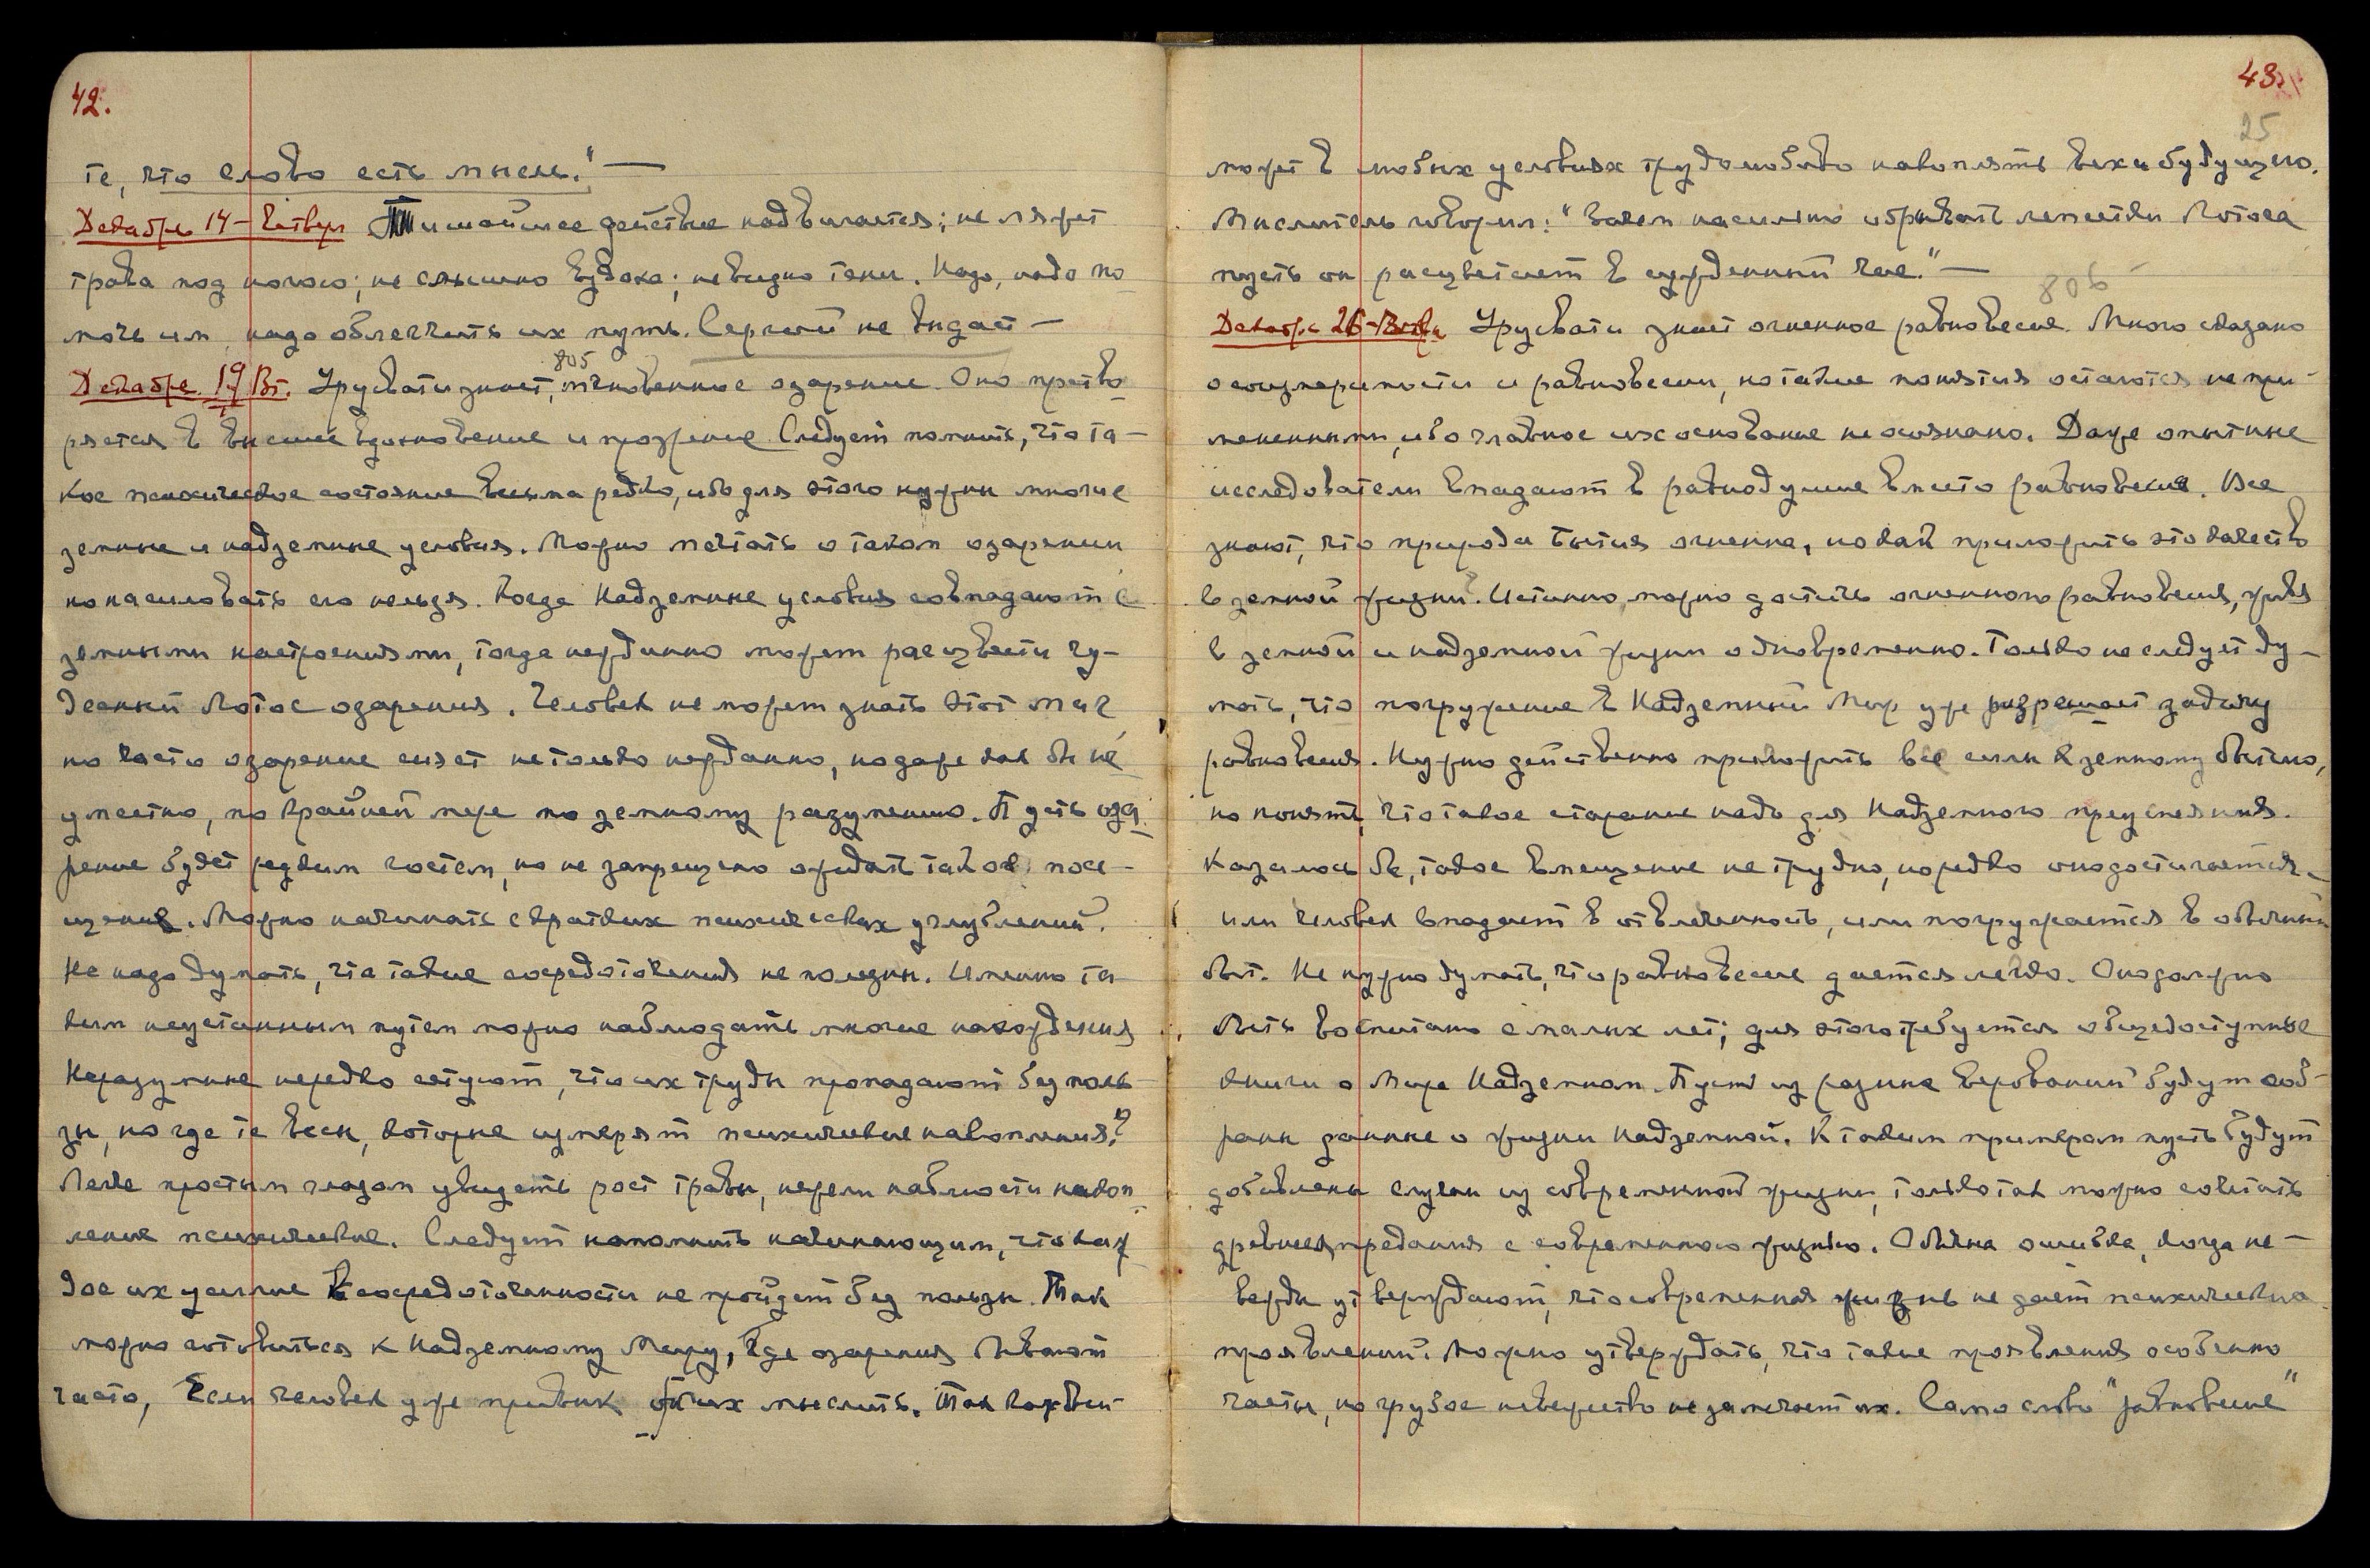 42.
те, что слово есть мысль." —
Декабрь 14 – Четверг Тишайшее действие надвигается; не мятет
трава под ногою; не слышно вздоха; не видно тени. Надо, надо по
мочь им, надо облегчить их путь. Сергий не выдаст —
805
Декабрь 19 Вт. Урусвати знает, мгновенное озарение. Оно претво
ряется в высшее вдохновение и прозрение. Следует помнить, что та –
кое психическое состояние весьма редко, ибо для этого нужны многие
земные и надземные условия. Можно мечтать о таком озарении
но насиловать его нельзя. Когда Надземные условия совпадают с
земными настроениями, тогда нежданно может расцвести чу –
десный Лотос озарения. Человек не может знать этот миг
но часто озарение сияет не только нежданно, но даже как бы не
уместно, по крайней мере по земному разумению. Пусть оза
рение будет редким гостем, но не запрещено ожидать такое посе –
щение. Можно начинать с кратких психических углублений.
Не надо думать, что такие сосредоточения не полезны. Именно та
ким неустанным путем можно наблюдать многие нахождения
Неразумные нередко сетуют, что их труды пропадают без поль
зы, но где те весы, которые измерят психические накопления?
Легче простым глазом увидеть рост травы, нежели наблюсти накоп
ление психическое. Следует напомнить начинающим, что каж
дое их усилие в сосредоточенности не пройдет без пользы. Так
можно готовиться к Надземному Миру, где озарения бывают
часто, если человек уже привык о них мыслить. Так каждый
43.
25
может в любых условиях трудолюбиво накоплять вехи будущего.
Мыслитель говорил: "Зачем насильно обрывать лепестки Лотоса
пусть он расцветает в сужденный час." —
806
Декабрь 26 – Вторн Урусвати знает огненное равновесие. Много сказано
о соизмеримости и равновесии, но такие понятия остаются не при –
мененными, ибо главное их основание не осознано. Даже опытные
исследователи впадают в равнодушие вместо равновесия. Все
знают, что природа Бытия огненна, но как приложить это качество
в земной жизни. Истинно, можно достичь огненного равновесия, живя
в земной и надземной жизни одновременно. Только не следует ду –
мать, что погружение в Надземный Мир уже разрешает задачу
равновесия. Нужно действенно приложить все силы к земному бытию,
но понять, что такое старание надо для Надземного преуспеяния.
Казалось бы, такое вмещение не трудно, но редко оно достигается –
или человек впадает в отвлеченность, или погружается в обычный
быт. Не нужно думать, что равновесие дается легко. Оно должно
быть воспитано с малых лет; для этого требуется общедоступные
книги о Мире Надземном. Пусть из разных верований будут соб –
раны данные о жизни надземной. К таким примерам пусть будут
добавлены случаи из современной жизни, только так можно сочетать
древнея предания с современною жизнью. Обычна ошибка, когда не –
вежды утверждают, что современная жизнь не дает психических
проявлений. Можно утверждать, что такие проявления особенно
часты, но грубое невежество не замечает их. Само слово "равновесие"